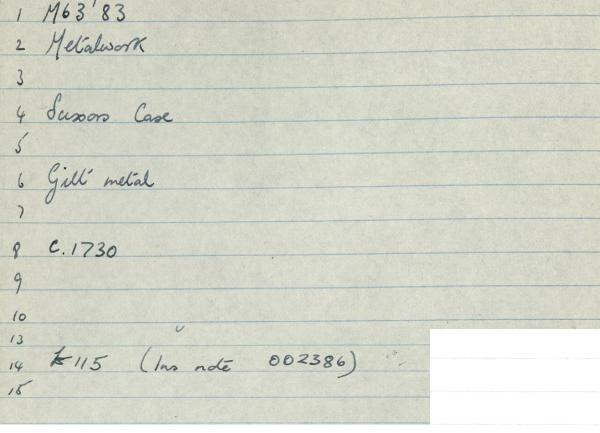 1 M63'83
2 Metalwork
3
4 Scissors Case
5
6 Gilt metal
7
8 c.1730
9
10
13
14 £115 (Ins note 002386)
15